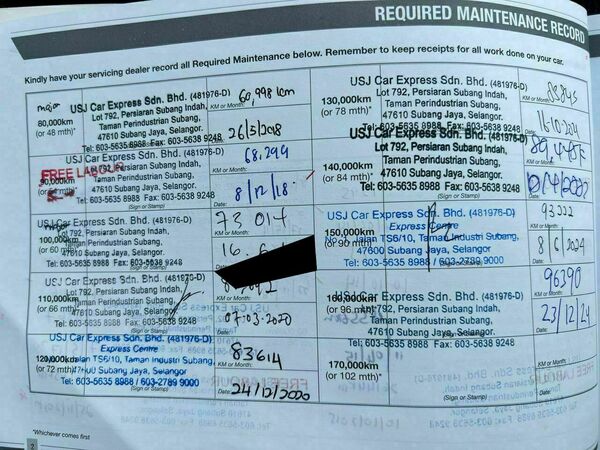 REQUIRED MAINTENANCE RECORD
Kindly have your servicing dealer record all Required Maintenance below. Remember to keep receipts for all work done on your car.
major
80,000km
(or 48 mth)*
USJ Car Express Sdn. Bhd. (481976-D)
Lot 792, Persiaran Subang Indah,
Taman Perindustrian Subang,
47610 Subang Jaya, Selangor.
Tel: 603-5635 8988 Fax: 603-5638 9248
(Sign or Stamp)
KM or Month:
60,998 km
Date:
26/3/2018
FREE LABOUR
USJ Car Express Sdn. Bhd. (481976-D)
Lot 792, Persiaran Subang Indah,
Taman Perindustrian Subang,
47610 Subang Jaya, Selangor.
Tel: 603-5635 8988 Fax: 603-5638 9248
(Sign or Stamp)
KM or Month:
68,299
Date:
8/12/18
major
100,000km
(or 60
USJ Car Express Sdn. Bhd. (481976-D)
Lot 792, Persiaran Subang Indah,
Taman Perindustrian Subang,
47610 Subang Jaya, Selangor.
Tel: 603-5635 8988 Fax: 603-5638 9248
KM or Month:
73 014
Date:
110,000km
(or 66 mth)*
USJ Car Express Sdn. Bhd. (481976-D)
Lot 792, Persiaran Subang Indah,
Taman Perindustrian Subang,
47610 Subang Jaya, Selangor.
Tel: 603-5635 8988 Fax: 603-5638 9248
(Sign or Stamp)
KM or Month:
Date:
07-03-2020
120,000km
(or 72 mth)*
USJ Car Express Sdn. Bhd. (481976-D)
Express Centre
Jalan TS6/10, Taman Industri Subang,
47600 Subang Jaya, Selangor
Tel: 603-5635 8988 / 603-2789 9000
(Sign or Stamp)
KM or Month:
83614
Date:
24/12/2020
130,000km
(or 78 mth)*
USJ Car Express Sdn. Bhd. (481976-D)
Lot 792, Persiaran Subang Indah,
Taman Perindustrian Subang,
47610 Subang Jaya, Selangor.
Tel: 603-5635 8988 Fax: 603-5638 9248
KM or Month:
Date:
140,000km
(or 84 mth)*
USJ Car Express Sdn. Bhd. (481976-D)
Lot 792, Persiaran Subang Indah,
Taman Perindustrian Subang,
47610 Subang Jaya, Selangor.
Tel: 603-5635 8988 Fax: 603-5638 9248
(Sign or Stamp)
KM or Month:
Date:
150,000km
(or 90 mth)*
USJ Car Express Sdn. Bhd. (481976-D)
Express Centre
Jalan TS6/10, Taman Industri Subang,
47600 Subang Jaya, Selangor
Tel: 603-5635 8988 / 603-2789 9000
KM or Month:
93222
Date:
8/6/2024
160,000km
(or 96 mth)*
USJ Car Express Sdn. Bhd. (481976-D)
Lot 792, Persiaran Subang Indah,
Taman Perindustrian Subang,
47610 Subang Jaya, Selangor.
Tel: 603-5635 8988 Fax: 603-5638 9248
KM or Month:
96390
Date:
23/12/24
170,000km
(or 102 mth)*
(Sign or Stamp)
KM or Month:
Date:
*Whichever comes first
2